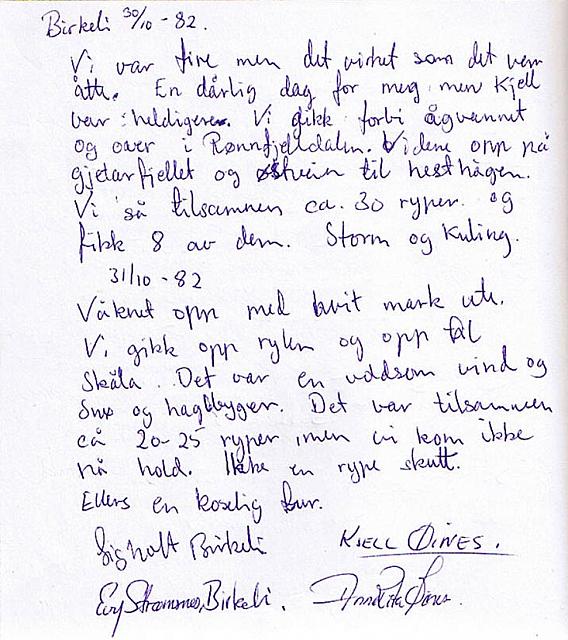 Birkeli 30/10 - 82.
Vi var fire men det virket som det var
åtte. En dårlig dag for meg, men Kjell
var heldigere. Vi gikk forbi ågvannet
og over i Rønnfjelldalen. Videre opp på
gjetarfjellet og østveien til hesthågen.
Vi så tilsammen ca. 30 ryper. og
fikk 8 av dem. Storm og Kuling.
31/10 - 82
Våknet opp med hvit mark ute.
Vi gikk opp ryken og opp til
Skåla. Det var en voldsom vind og
snø og haglbyger. Det var tilsammen
ca 20-25 ryper, men vi kom ikke
på hold. Ikke en rype skutt.
Ellers en koselig tur.
Birkeli KJELL ØINES.
Evy Strømmer Birkeli. Anne Rita Øines.